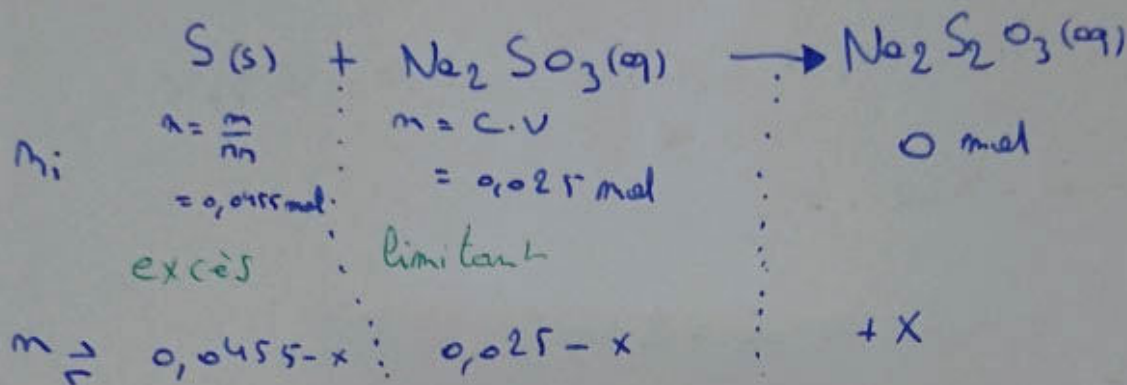 S(s) + Na2 SO3(aq) → Na2 S2 O3(aq)
ni n = m/m n = C.V 0 mol
= 0,0455 mol = 0,025 mol
excès limitant
n ⇌ 0,0455-x 0,025-x +x